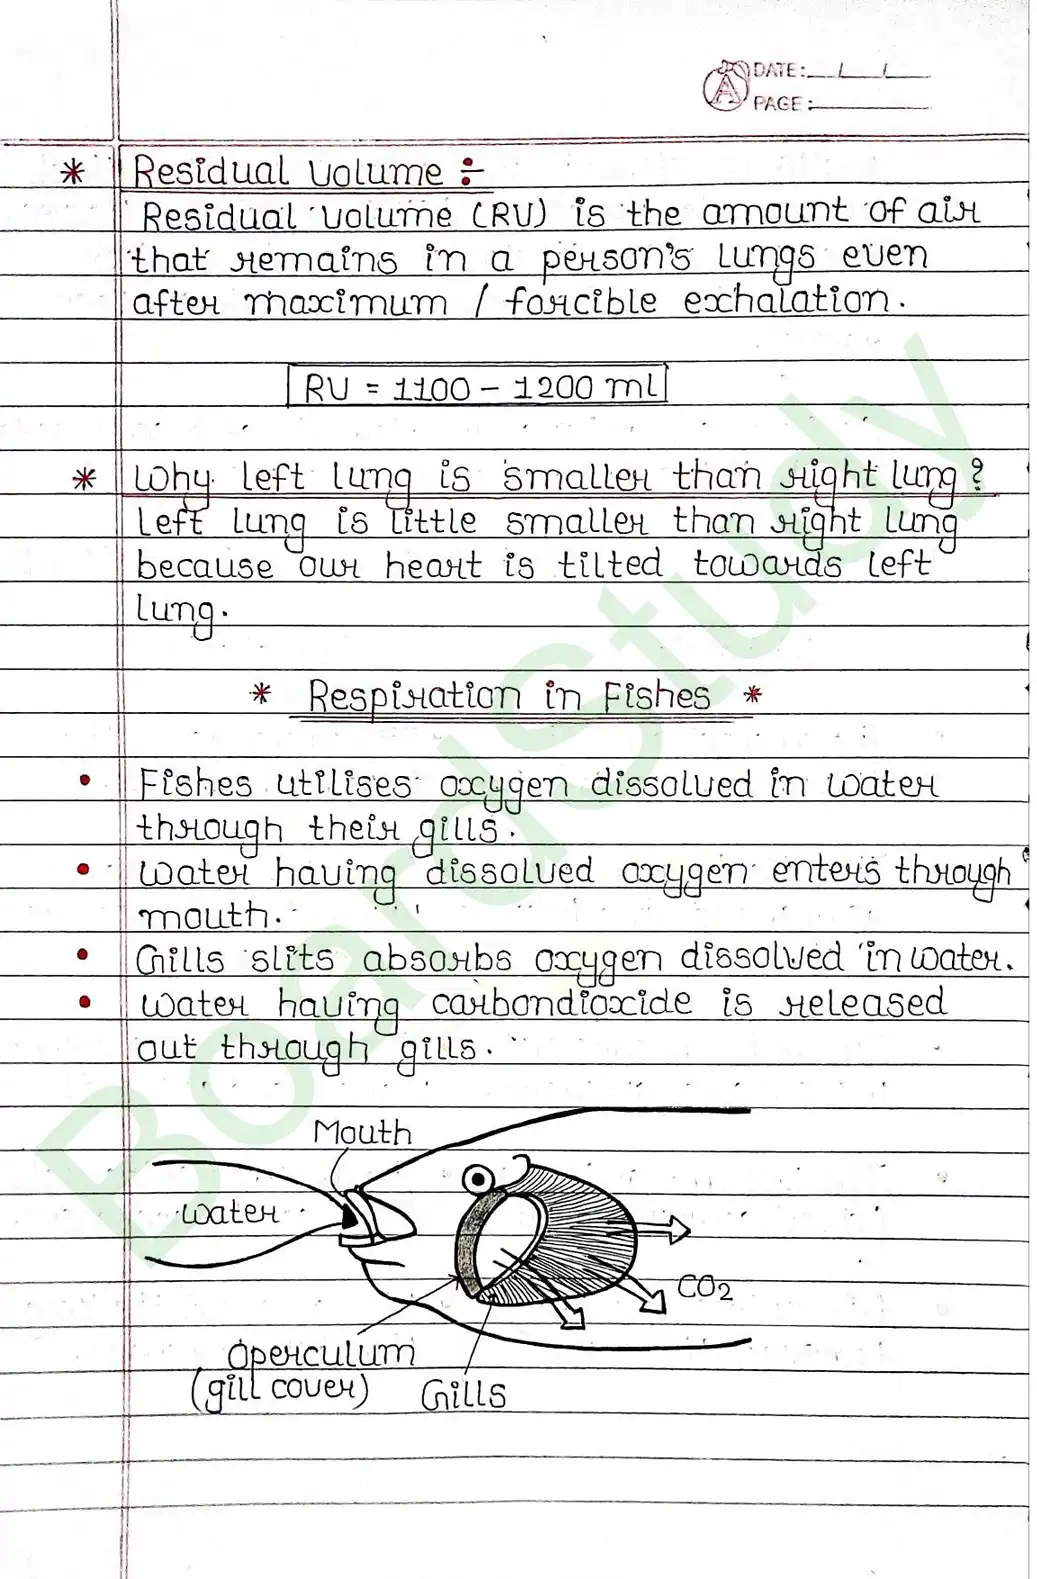 DATE: / /
PAGE:
* Residual Volume ÷
Residual volume (RV) is the amount of air
that remains in a person's lungs even
after maximum / forcible exhalation.
RV = 1100 – 1200 ml
* Why left lung is smaller than right lung?
Left lung is little smaller than right lung
because our heart is tilted towards left
lung.
* Respiration in Fishes *
• Fishes utilises oxygen dissolved in water
through their gills.
• Water having dissolved oxygen enters through
mouth.
• Gills slits absorbs oxygen dissolved in water.
• Water having carbondioxide is released
out through gills.
Mouth
Water
CO2
Operculum
(gill cover)
Gills
BoardStudy